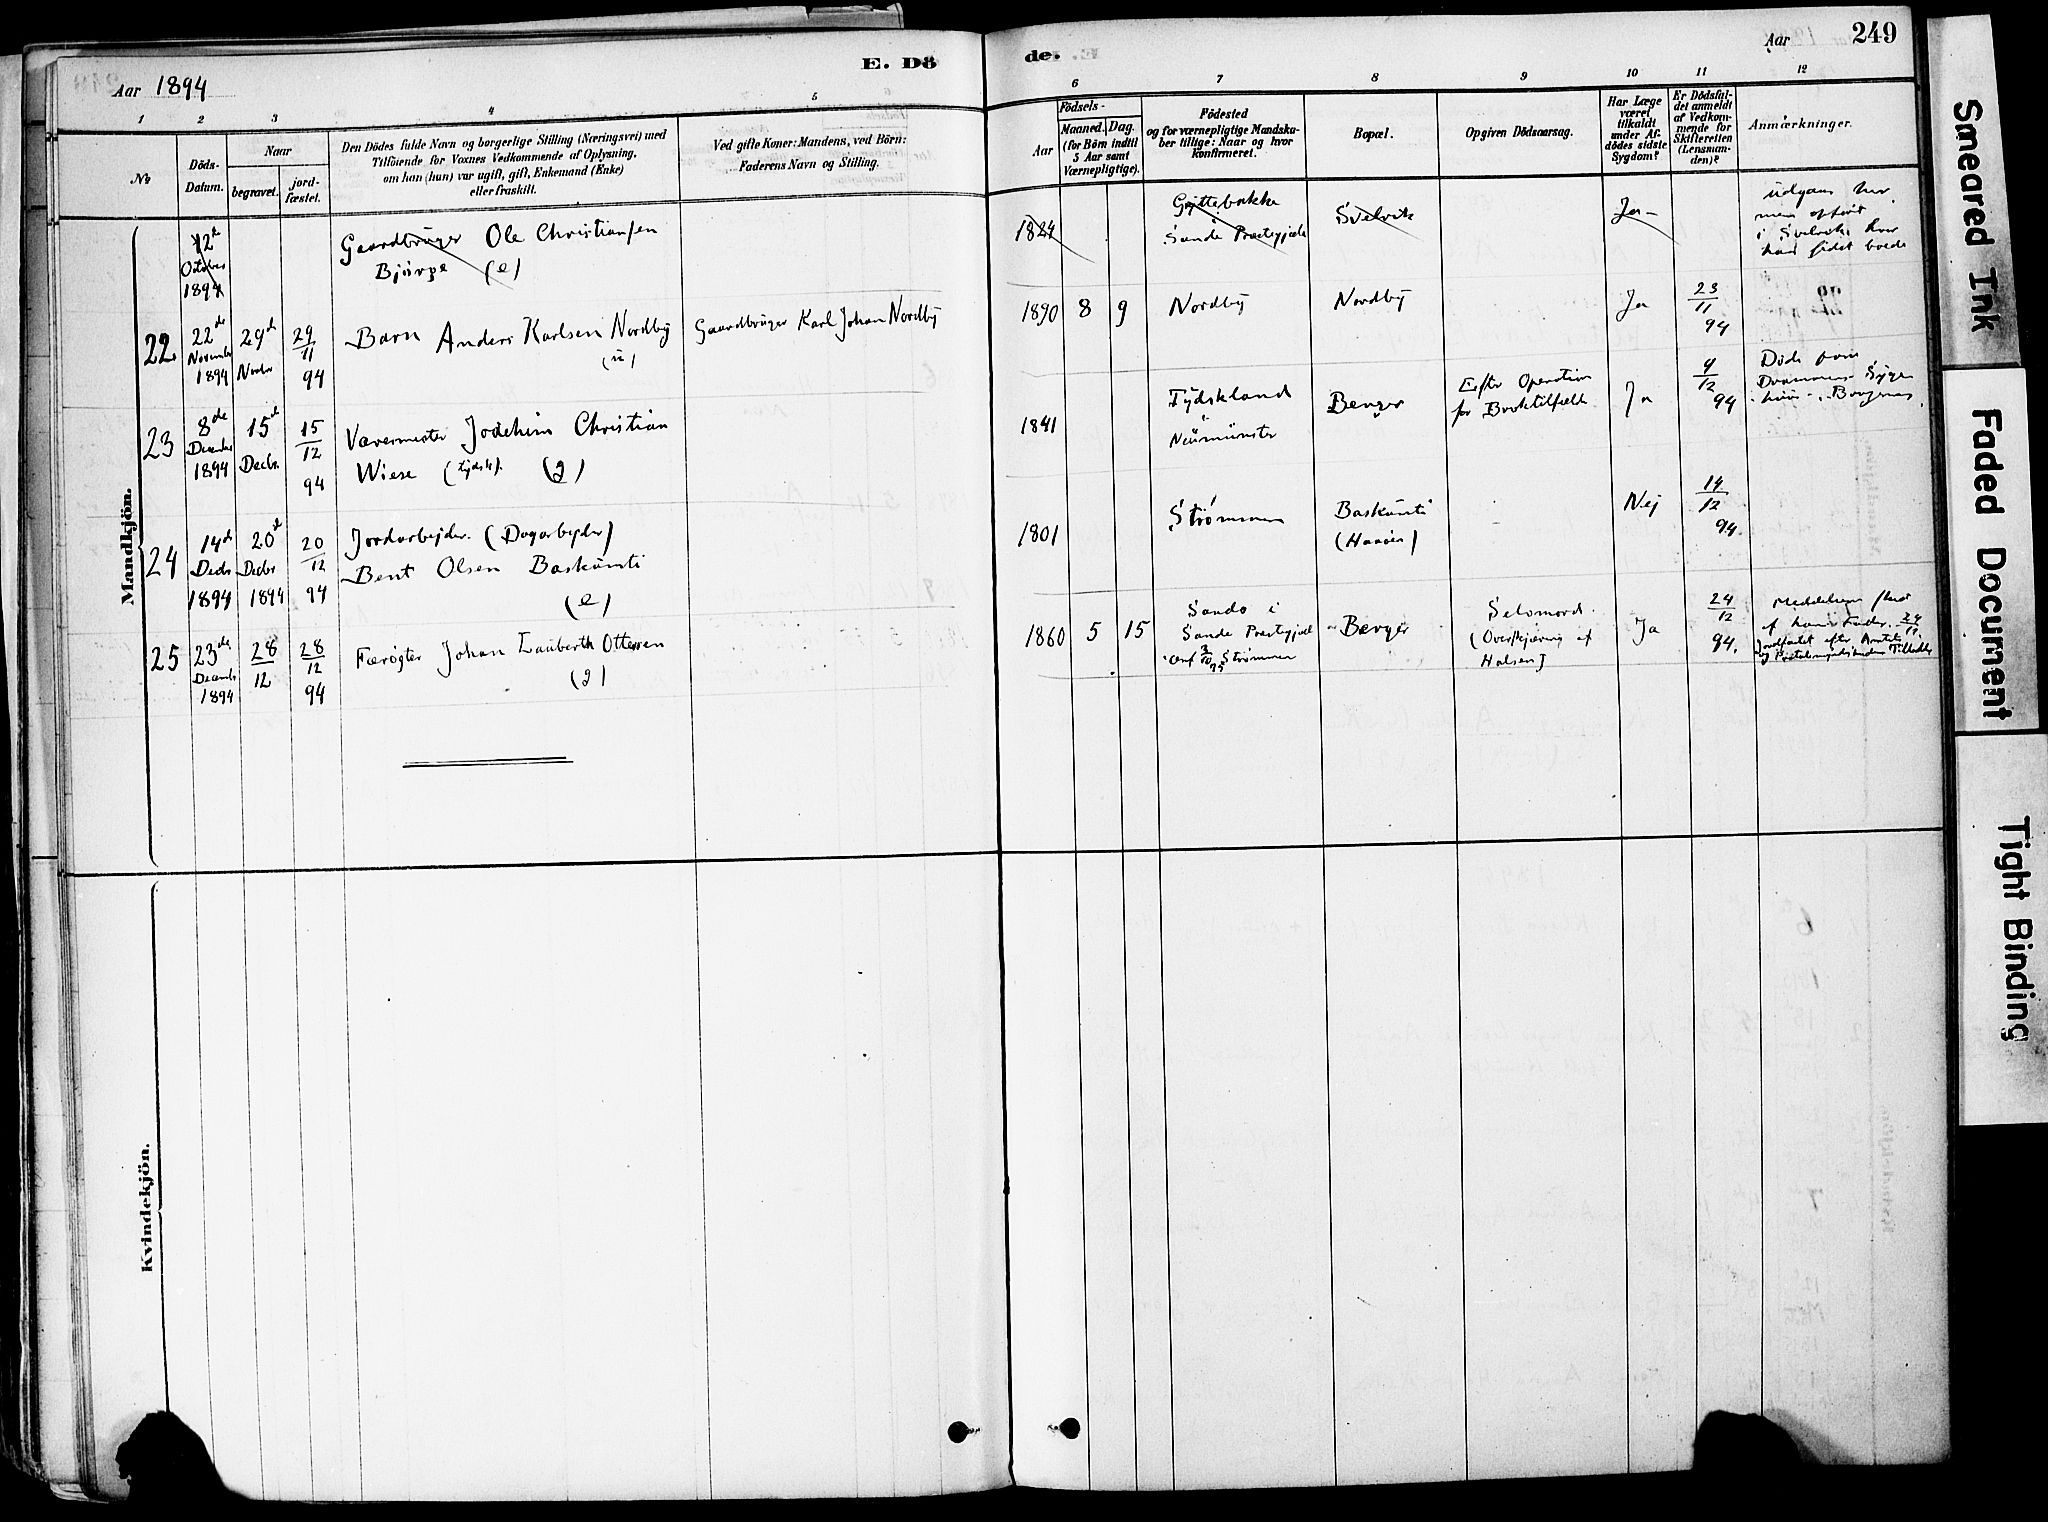 E. Dö
de.
Aar 1894
Aar
249
1
2
3
4
5
6
7
8
9
10
11
12
№
Döds-
Datum.
Naar
begravet.
jord-
fæstet.
Den Dödes fulde Navn og borgerlige Stilling (Næringsvei) med
Tilföiende for Voxnes Vedkommende af Oplysning,
om han (hun) var ugift, gift, Enkemand (Enke)
eller fraskilt.
Ved gifte Koner: Mandens, ved Börn:
Faderens Navn og Stilling.
Födsels-
Aar
Maaned. Dag.
(for Börn indtil
5 Aar samt
Værnepligtige).
Födested
og for værnepligtige Mandska-
ber tillige: Naar og hvor
konfirmeret.
Bopæl.
Opgiven Dödsaarsag.
Har Læge
været
tilkaldt
under Af-
dödes sidste
Sygdom?
Er Dödsfal-
det anmeldt
af Vedkom-
mende for
Skifteretten
(Lensman-
den)?
Anmærkninger.
Mandkjön.
12te
October
1894
Gaardbruger Ole Christiansen
Bjürge (e)
1824
Sande Præstegjæld
Svelvik
Ja
22
22de
Novembr
1894
29de
Novbr
29/11
94
Barn Anders Karlsen Nordby
(u)
Gaardbruger Karl Johan Nordby
1890 8 9
Nordby
Nordby
Ja
23/11
94
23
8de
Decembr
1894
15de
Decbr.
15/12
94
Vævermester Joachim Christian
Wiese (tydsk). (g)
1841
Tydskland
Neumünster
Berger
Efter Operation
for Broktilfælde
Ja
9/12
94
24
14de
Decbr
1894
20de
Decbr
1894
20/12
94
Jordarbejder. (Dagarbejder)
Bent Olsen Baskamti
(e)
1801
Strømmen
Baskamti
Nej
14/12
94
25
23de
Decembr
1894
28/12
28/12
94
Færøgter Johan Lauberth Ottersen
(g)
1860 5 15
Sando i
Sande Præstegjæld
Strømmen
Berger
Selvmord
(Overskjæring af
Halsen)
Ja
24/12
94.
Kvindekjön.
Smeared Ink
Faded Document
Tight Binding